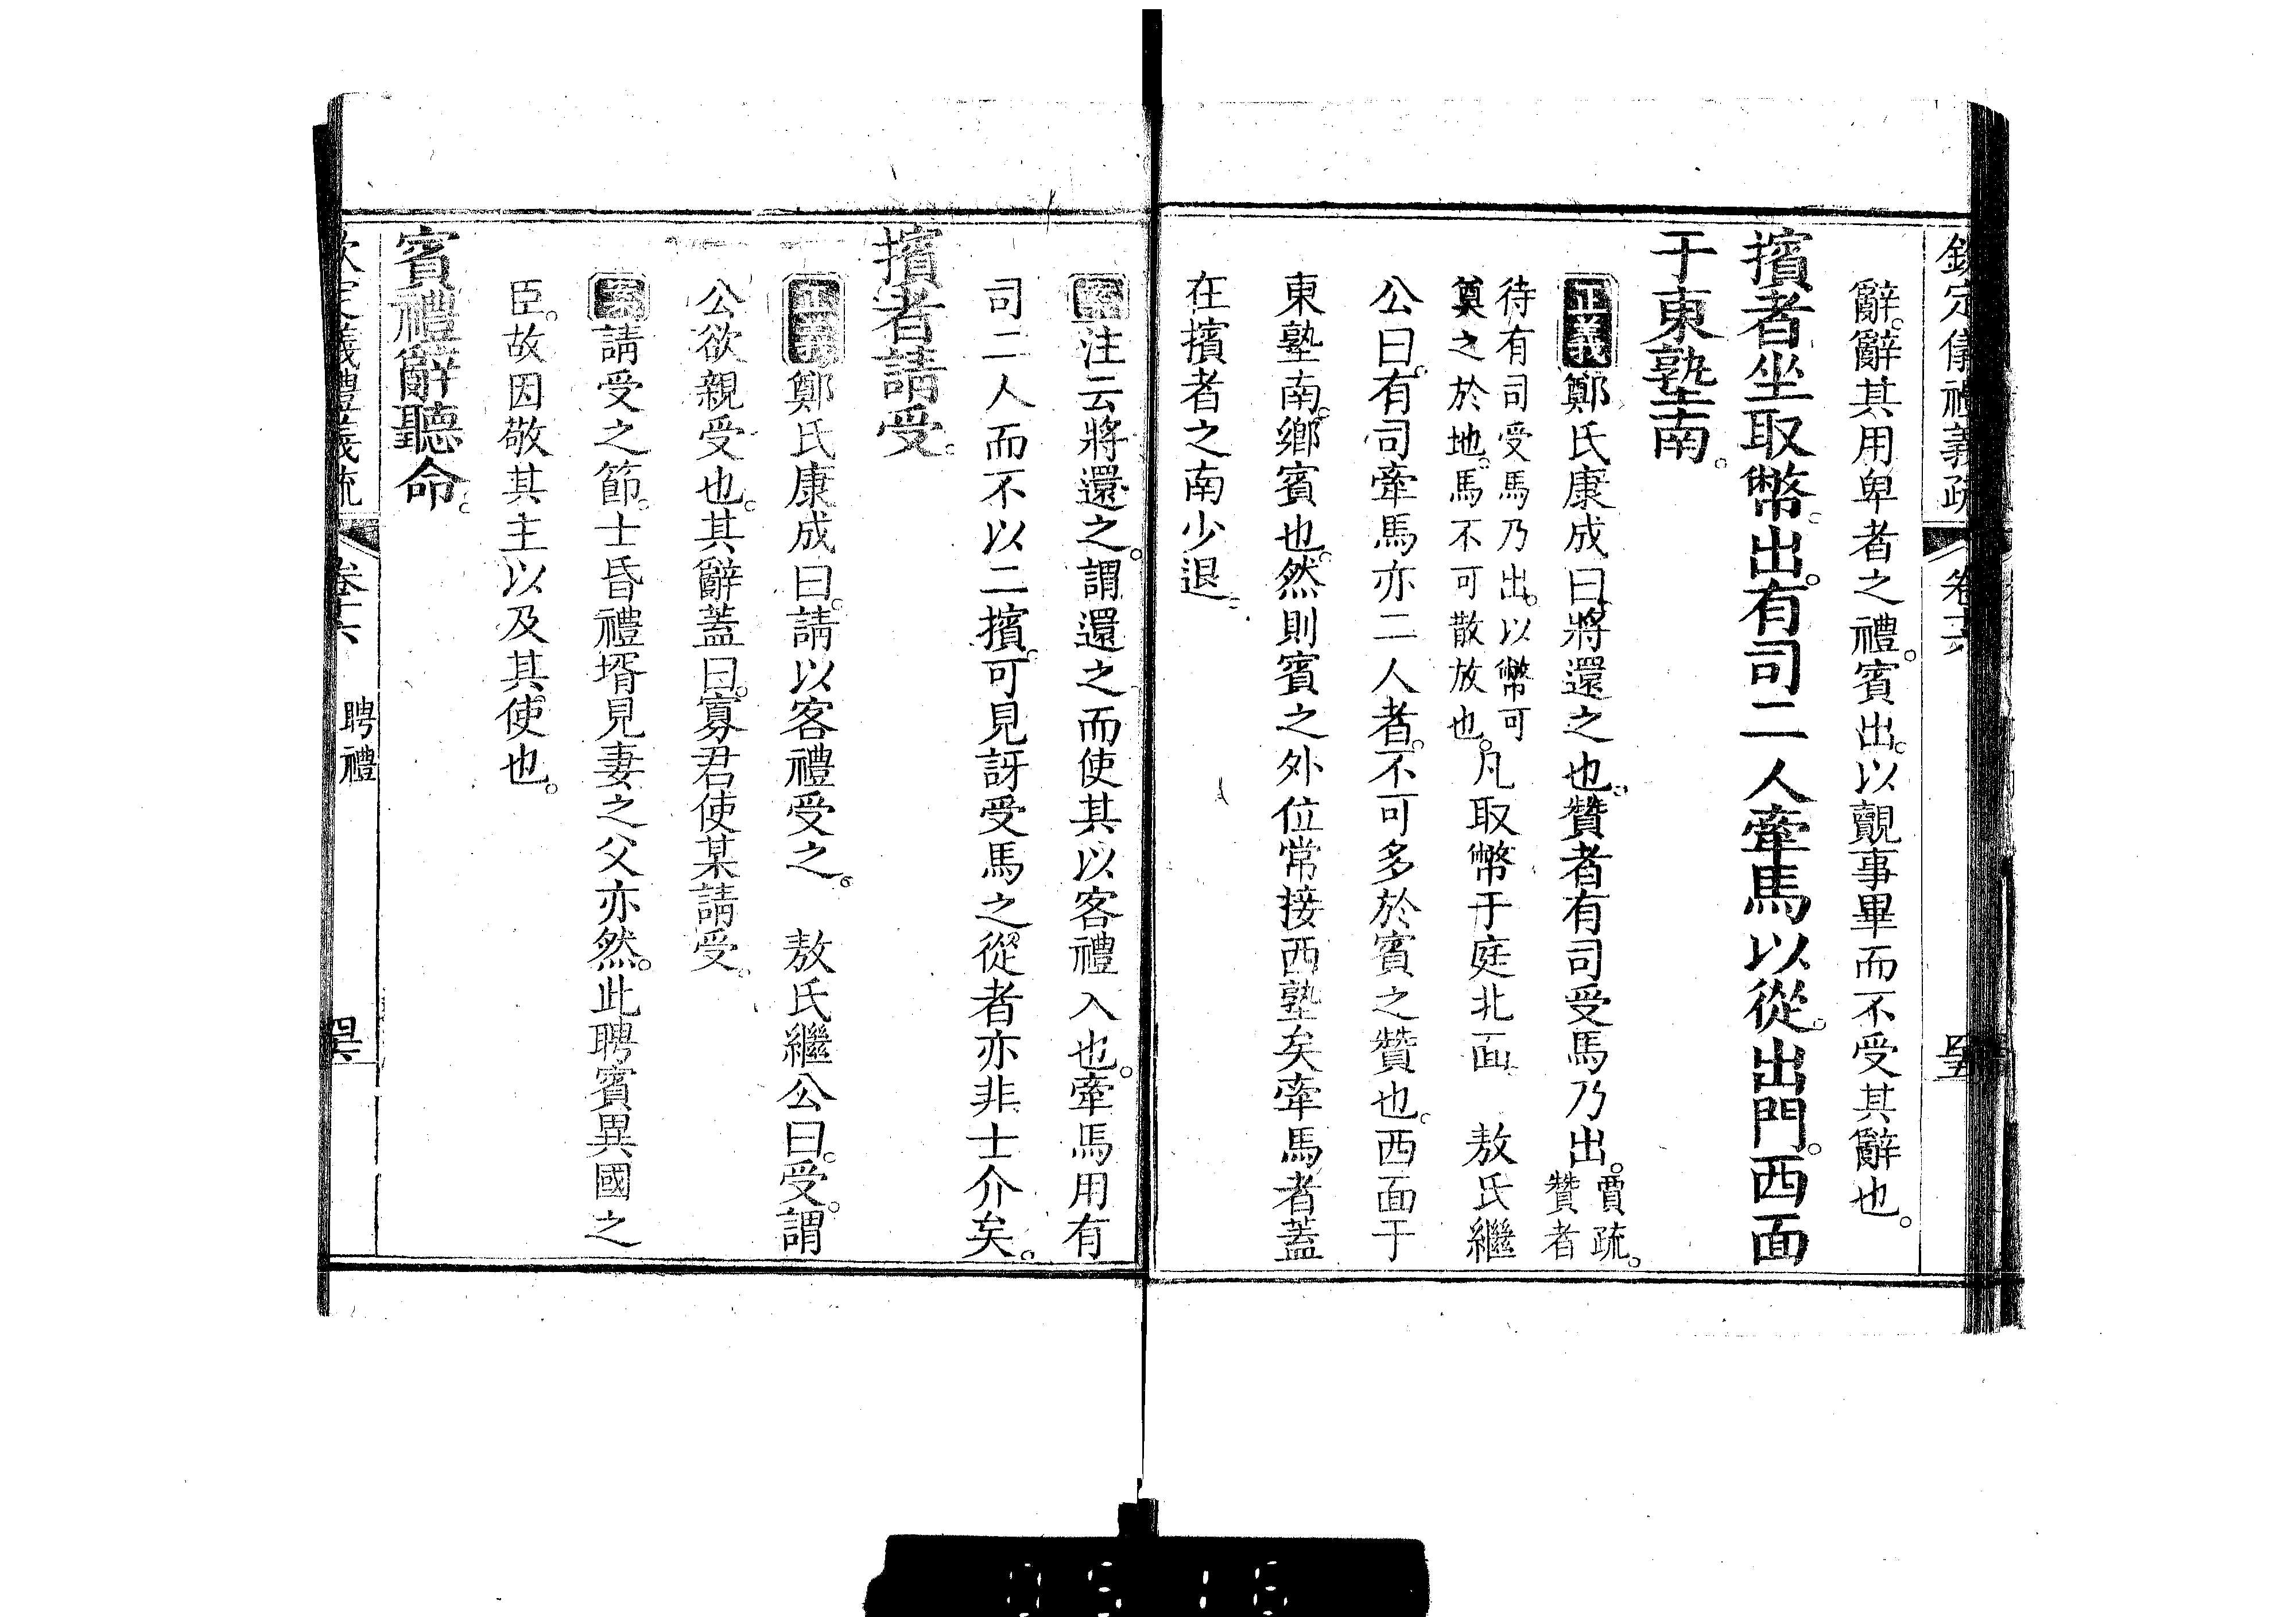 欽定儀禮義疏 卷十六 四五
辭。辭其用卑者之禮。賓出。以覿事畢而不受其辭也。
擯者坐取幣。出。有司二人牽馬以從。出門。西面
于東塾南。
正義鄭氏康成曰。將還之也。贊者有司受馬乃出。賈疏。贊者
待有司受馬乃出。以幣可
奠之於地。馬不可散放也。凡取幣于庭北面 敖氏繼
公曰。有司牽馬亦二人者。不可多於賓之贊也。西面于
東塾南。鄉賓也。然則賓之外位常接西塾矣牽馬者蓋
在擯者之南少退。
案注云將還之。謂還之而使其以客禮入也。牽馬用有
司二人而不以二擯。可見訝受馬之從者亦非士介矣。
擯者請受。
正義鄭氏康成曰。請以客禮受之。 敖氏繼公曰。受。謂
公欲親受也。其辭蓋曰。寡君使某請受。
案請受之節。士昏禮壻見妻之父亦然。此聘賓異國之
臣。故因敬其主以及其使也。
賓禮辭聽命。
欽定儀禮義疏 卷十六 聘禮 四六